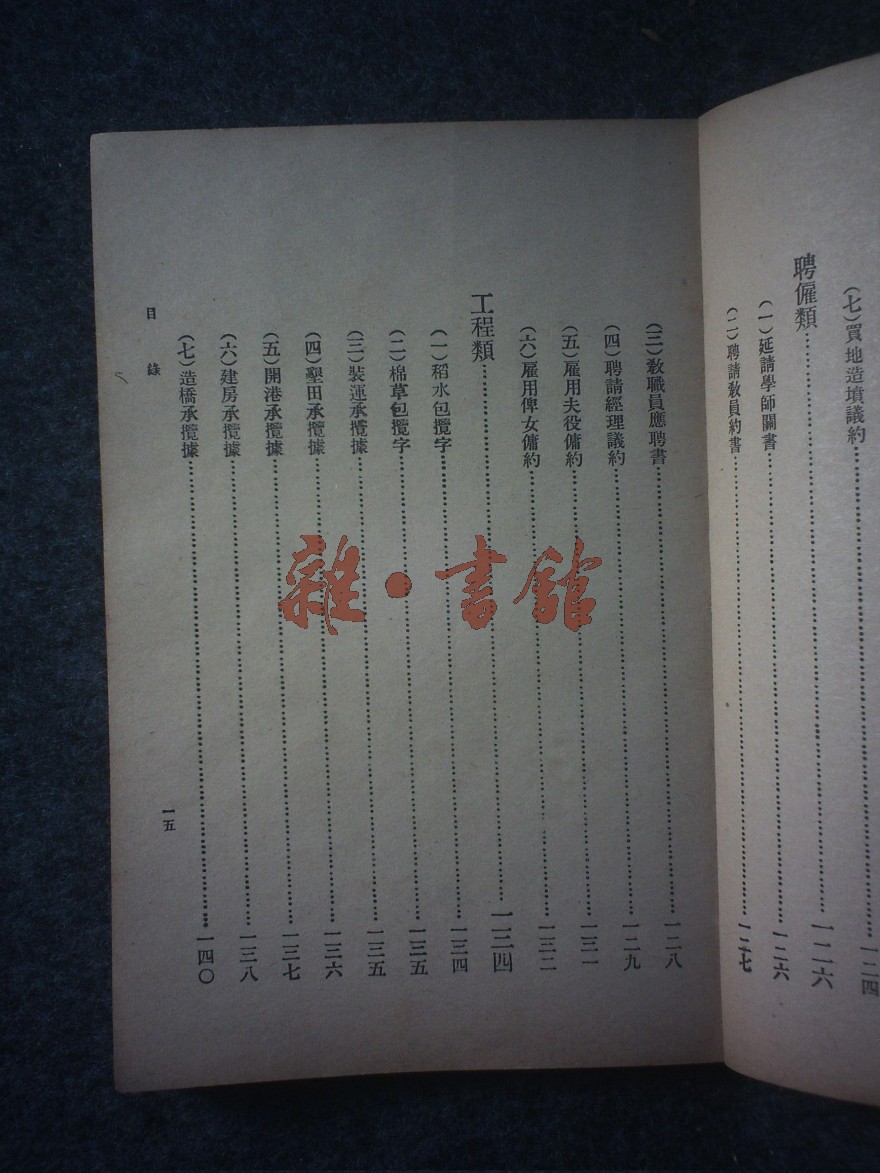 (七)買地造墳議約……一二四
聘僱類……一二六
(一)延請學師關書……一二六
(二)聘請教員約書……一二七
(三)教職員應聘書……一二八
(四)聘請經理議約……一二九
(五)雇用夫役傭約……一三一
(六)雇用俾女傭約……一三二
工程類……一三四
(一)稻水包攬字……一三四
(二)棉草包攬字……一三五
(三)裝運承攬據……一三五
(四)墾田承攬據……一三六
(五)開港承攬據……一三七
(六)建房承攬據……一三八
(七)造橋承攬據……一四〇
目錄 一五
雜·書館